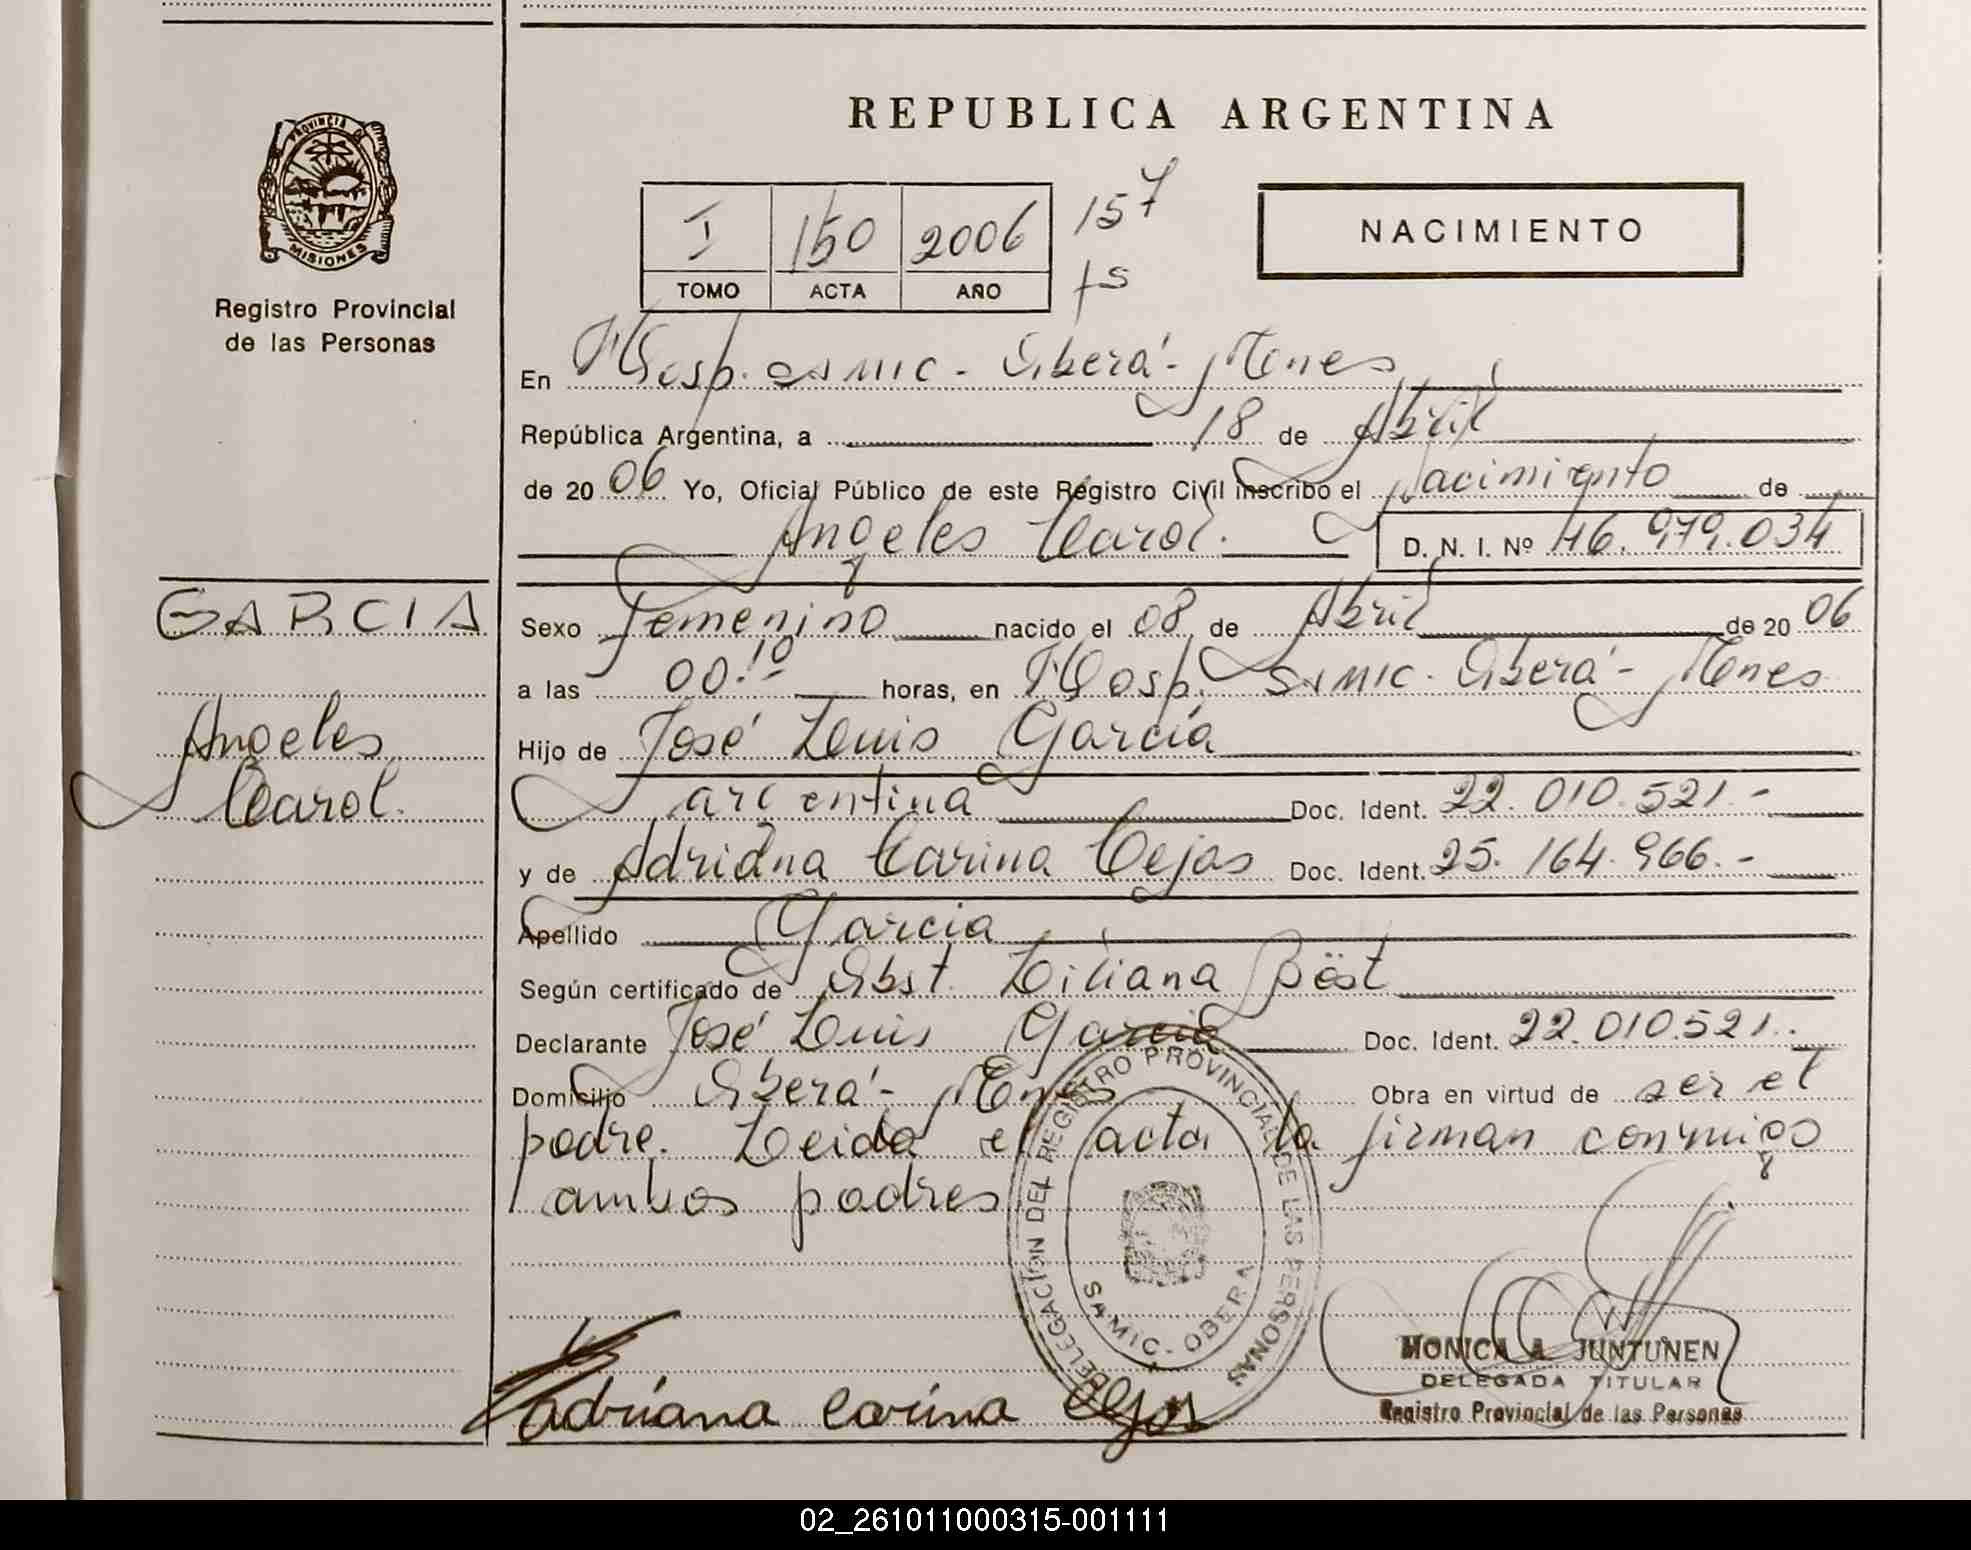 REPUBLICA ARGENTINA
PROVINCIA DE
MISIONES
Registro Provincial
de las Personas
I 150 2006 157
TOMO ACTA AÑO fs
NACIMIENTO
En Hosp. SAMIC - Oberá - Mnes
República Argentina, a 18 de Abril
de 2006 Yo, Oficial Público de este Registro Civil inscribo el Nacimiento de
Angeles Carol. D. N. I. Nº 46.979.034
GARCIA
Angeles
Carol.
Sexo femenino nacido el 08 de Abril de 2006
a las 00.10 horas, en Hosp. SAMIC. Oberá - Mnes
Hijo de José Luis García
argentina Doc. Ident. 22.010.521.-
y de Adriana Carina Cejas Doc. Ident. 25.164.966.-
Apellido Garcia
Según certificado de Obst. Liliana Böst
Declarante José Luis Garcia Doc. Ident. 22.010.521.-
Domicilio Oberá - Mnes Obra en virtud de ser el
padre. Leida el acta la firman conmigo
ambos padres
DELEGACION DEL REGISTRO PROVINCIAL DE LAS PERSONAS
SAMIC - OBERA
MONICA A. JUNTUNEN
DELEGADA TITULAR
Registro Provincial de las Personas
adriana carina Cejas
02_261011000315-001111